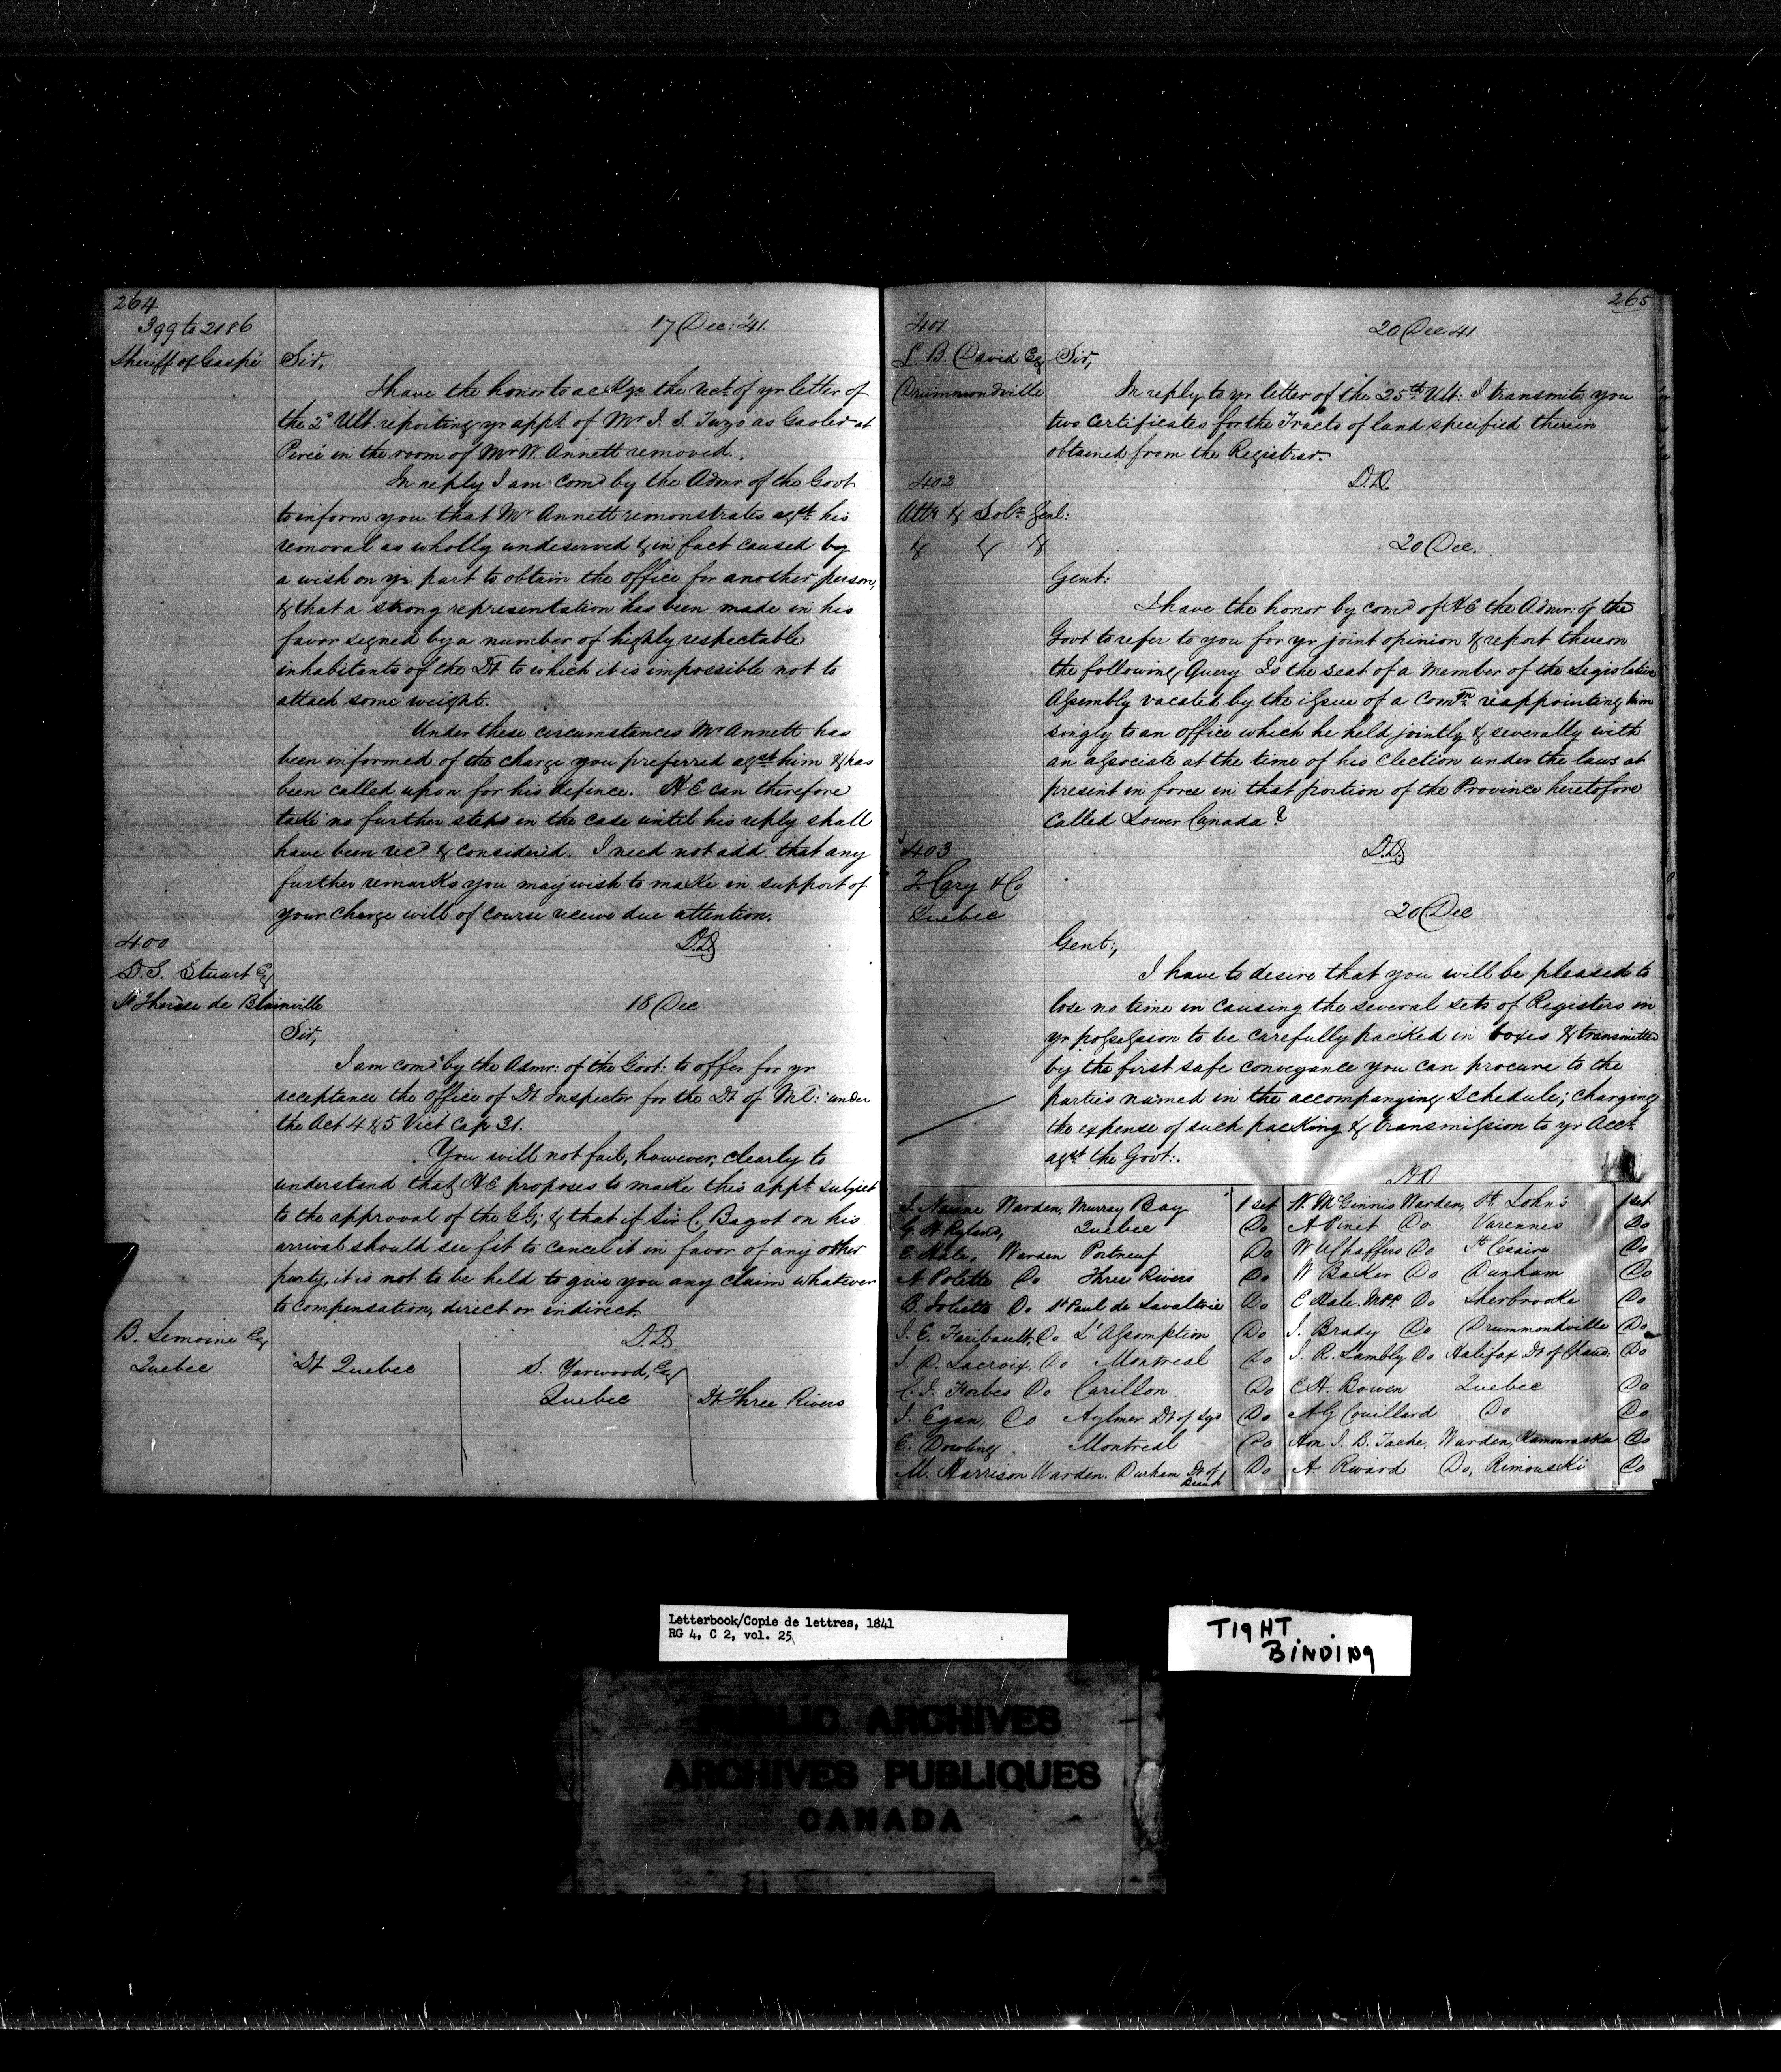 264
399 to 2186
17 Dec: '41.
Sheriff of Gaspé
Sir,
I have the honor to ackge the rect of yr letter of
the 2d Ult. reporting yr appt of Mr J. S. Tuzo as Gaoler at
Percé in the room of Mr W. Annett removed.
In reply I am comd by the Admr of the Govt
to inform you that Mr Annett remonstrates agst his
removal as wholly undeserved & in fact caused by
a wish on yr part to obtain the office for another person,
& that a strong representation has been made in his
favor signed by a number of highly respectable
inhabitants of the Dt to which it is impossible not to
attach some weight.
Under these circumstances Mr Annett has
been informed of the charge you preferred agst him & has
been called upon for his defence. H E can therefore
take no further steps in the case until his reply shall
have been recd & considered. I need not add that any
further remarks you may wish to make in support of
your charge will of course receive due attention.
D.D
400
D. S. Stuart Esq
St Therèse de Blainville
18 Dec
Sir,
I am comd by the Admr: of the Govt: to offer for yr
acceptance the office of Dt Inspector for the Dt of Ml: under
the Act 4 & 5 Vict Cap 31.
You will not fail, however, clearly to
understand that H E proposes to make this appt subject
to the approval of the GG; & that if Sir C. Bagot on his
arrival should see fit to cancel it in favor of any other
party, it is not to be held to give you any claim whatever
to compensation, direct or indirect.
D.D
B. Lemoine Esq
Quebec
Dt Quebec
S. Yarwood, Esq
Quebec
Dt Three Rivers
265
401
20 Dec 41
L. B. David Esq
Drummondville
Sir,
In reply to yr letter of the 25th Ult: I transmit you
two certificates for the Tracts of land specified therein
obtained from the Registrar.
D.D.
402
Atty & Solr Genl:
& & &
20 Dec.
Gent:
I have the honor by comd of H E the Admr: of the
Govt to refer to you for yr joint opinion & report thereon
the following Query. Is the seat of a Member of the Legislative
Assembly vacated by the issue of a Comn reappointing him
singly to an office which he held jointly & severally with
an associate at the time of his Election under the laws at
present in force in that portion of the Province heretofore
called Lower Canada?
D.D.
403
T. Cary & Co
Quebec
20 Dec
Gent:,
I have to desire that you will be pleased to
lose no time in causing the several sets of Registers in
yr possession to be carefully packed in boxes & transmitted
by the first safe conveyance you can procure to the
parties named in the accompanying Schedule; charging
the expense of such packing & transmission to yr Acct
agst the Govt:.
D.D
J. Nairne Warden, Murray Bay 1 set
G. H Ryland, Quebec Do
E. Hale, Warden Portneuf Do
A Polette Do Three Rivers Do
B. Joliette Do St Paul de Lavaltrie Do
J. E. Faribault, Do L'Assomption Do
J. D. Lacroix, Do Montreal Do
C. J. Forbes Do Carillon Do
J. Egan, Do Aylmer Dt of Syd Do
E. Dowling Montreal Do
M. Harrison Warden. Durham Dt of Beauh Do
W. McGinnis Warden, St John's 1 set
A Pinet Do Varennes Do
W U Chaffers Do St Césaire Do
W Baker Do Dunham Do
E Hale. MPP. Do Sherbrooke Do
J. Brady Do Drummondville Do
J. R. Lambly Do Halifax Dt of Chaud: Do
E H. Bowen Quebec Do
A G Couillard Do Do
Hon J. B. Tache, Warden, Kamouraska Do
A. Rivard Do, Rimouski Do
Letterbook/Copie de lettres, 1841
RG 4, C 2, vol. 25
TIGHT
BINDING
PUBLIC ARCHIVES
ARCHIVES PUBLIQUES
CANADA